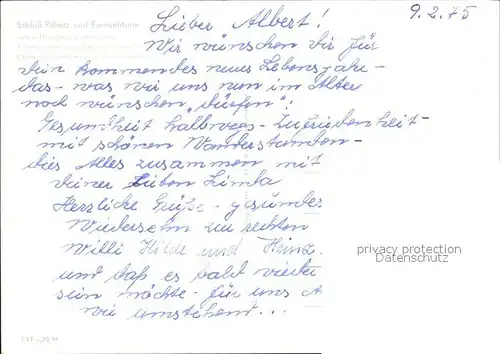 Schloß Pillnitz und Fernsehturm
9. 2. 75
Lieber Albert!
Wir wünschen dir für
dein kommendes neues Lebensjahr -
das - was wir uns nun im Alter
noch wünschen „dürfen"!
Gesundheit halbwegs - Zufriedenheit -
mit schönen Wanderstunden -
dies Alles zusammen mit
deiner lieben Limla
Herzliche Grüße - gesundes
Wiedersehn zu rechten
Willi Hilde und Heinz.
und daß es bald wieder
sein möchte - für uns A
wie umstehend...
privacy protection
Datenschutz